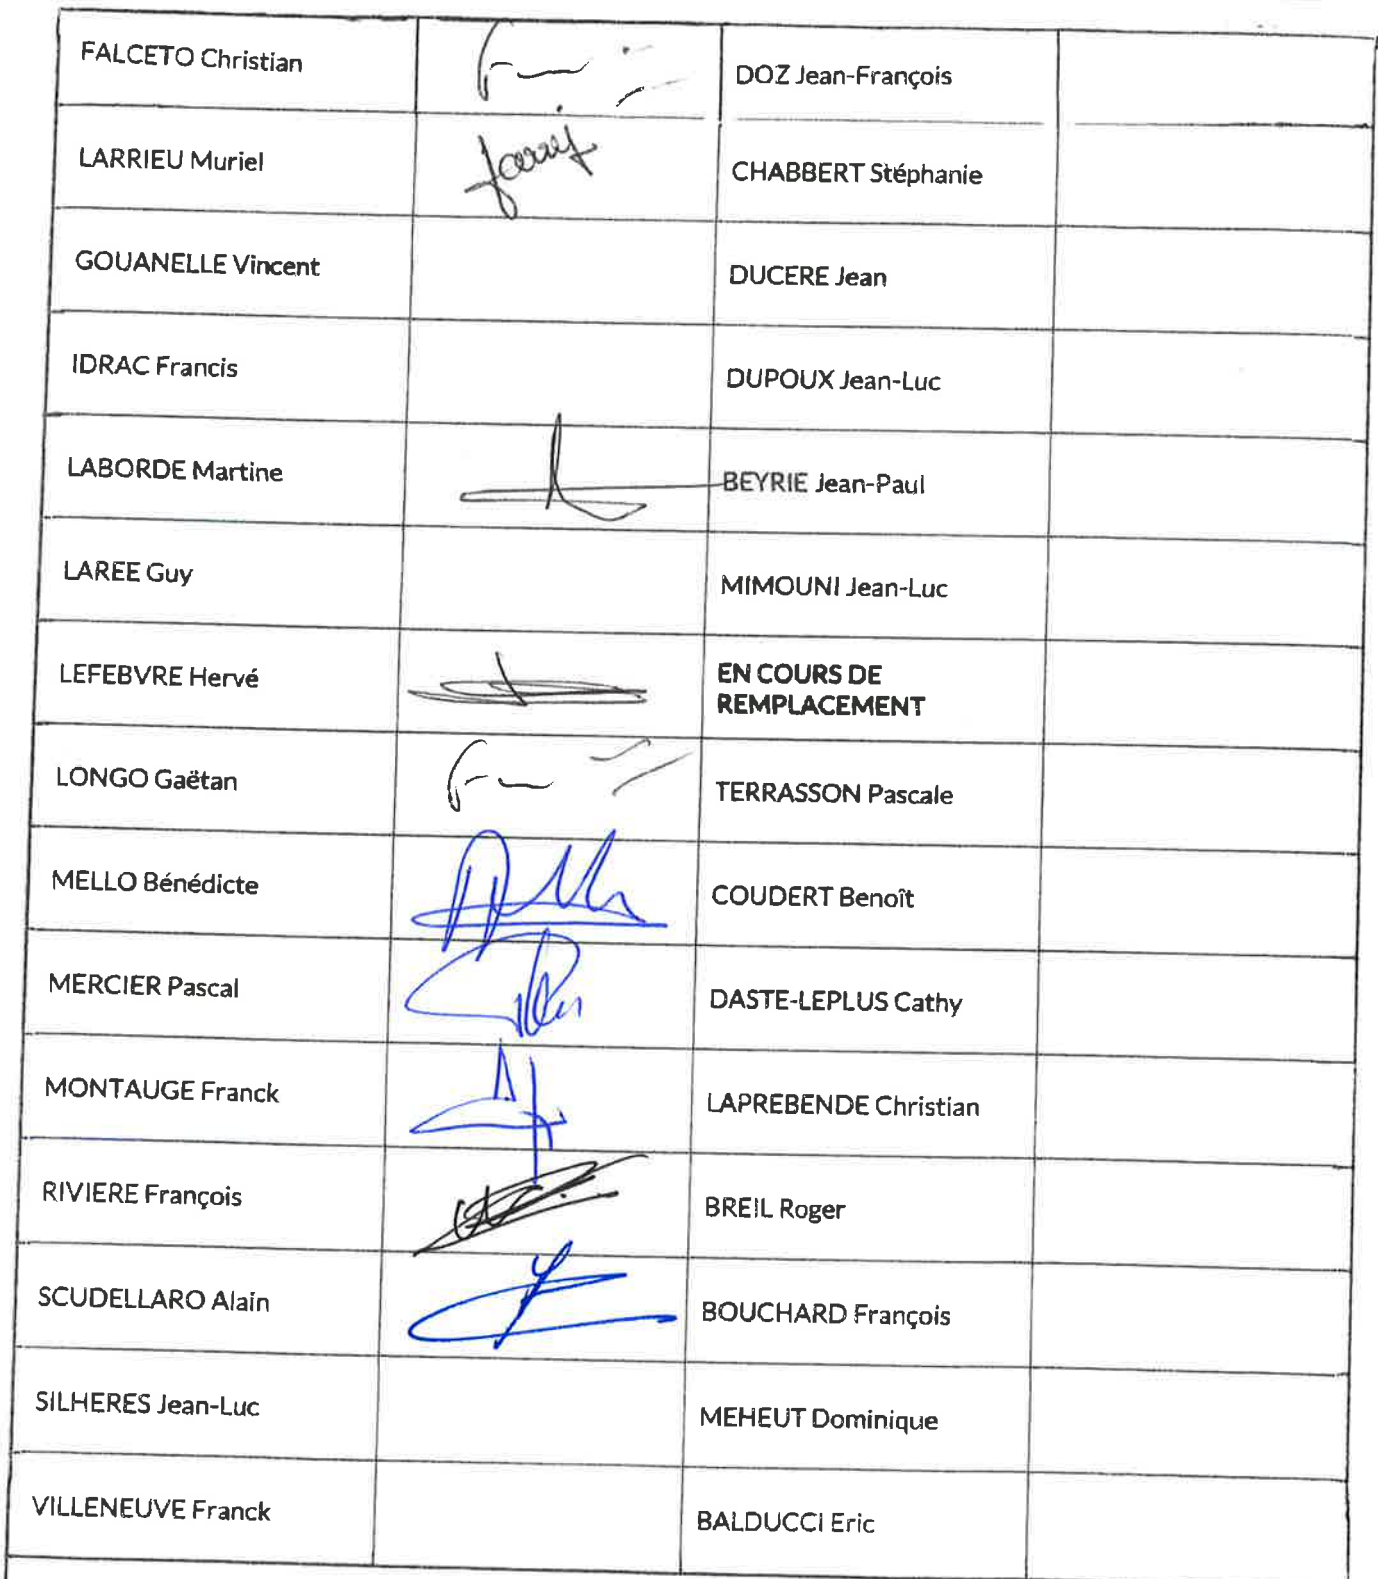 FALCETO Christian
DOZ Jean-François
LARRIEU Muriel
CHABBERT Stéphanie
GOUANELLE Vincent
DUCERE Jean
IDRAC Francis
DUPOUX Jean-Luc
LABORDE Martine
BEYRIE Jean-Paul
LAREE Guy
MIMOUNI Jean-Luc
LEFEBVRE Hervé
EN COURS DE
REMPLACEMENT
LONGO Gaëtan
TERRASSON Pascale
MELLO Bénédicte
COUDERT Benoît
MERCIER Pascal
DASTE-LEPLUS Cathy
MONTAUGE Franck
LAPREBENDE Christian
RIVIERE François
BREIL Roger
SCUDELLARO Alain
BOUCHARD François
SILHERES Jean-Luc
MEHEUT Dominique
VILLENEUVE Franck
BALDUCCI Eric